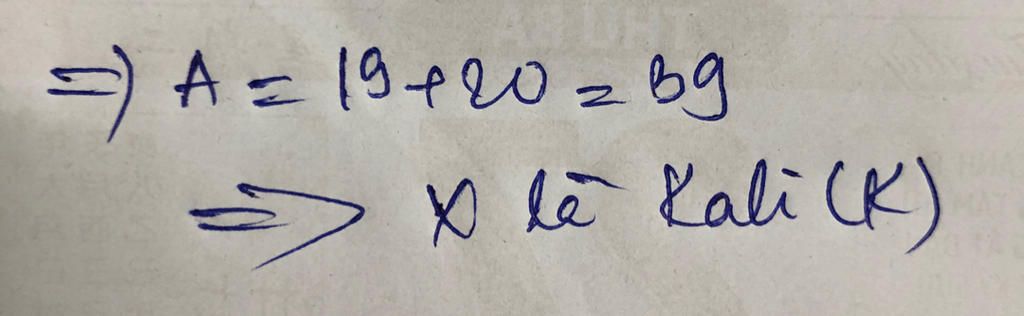 => A = 19 + 20 = 39
=> X là Kali (K)